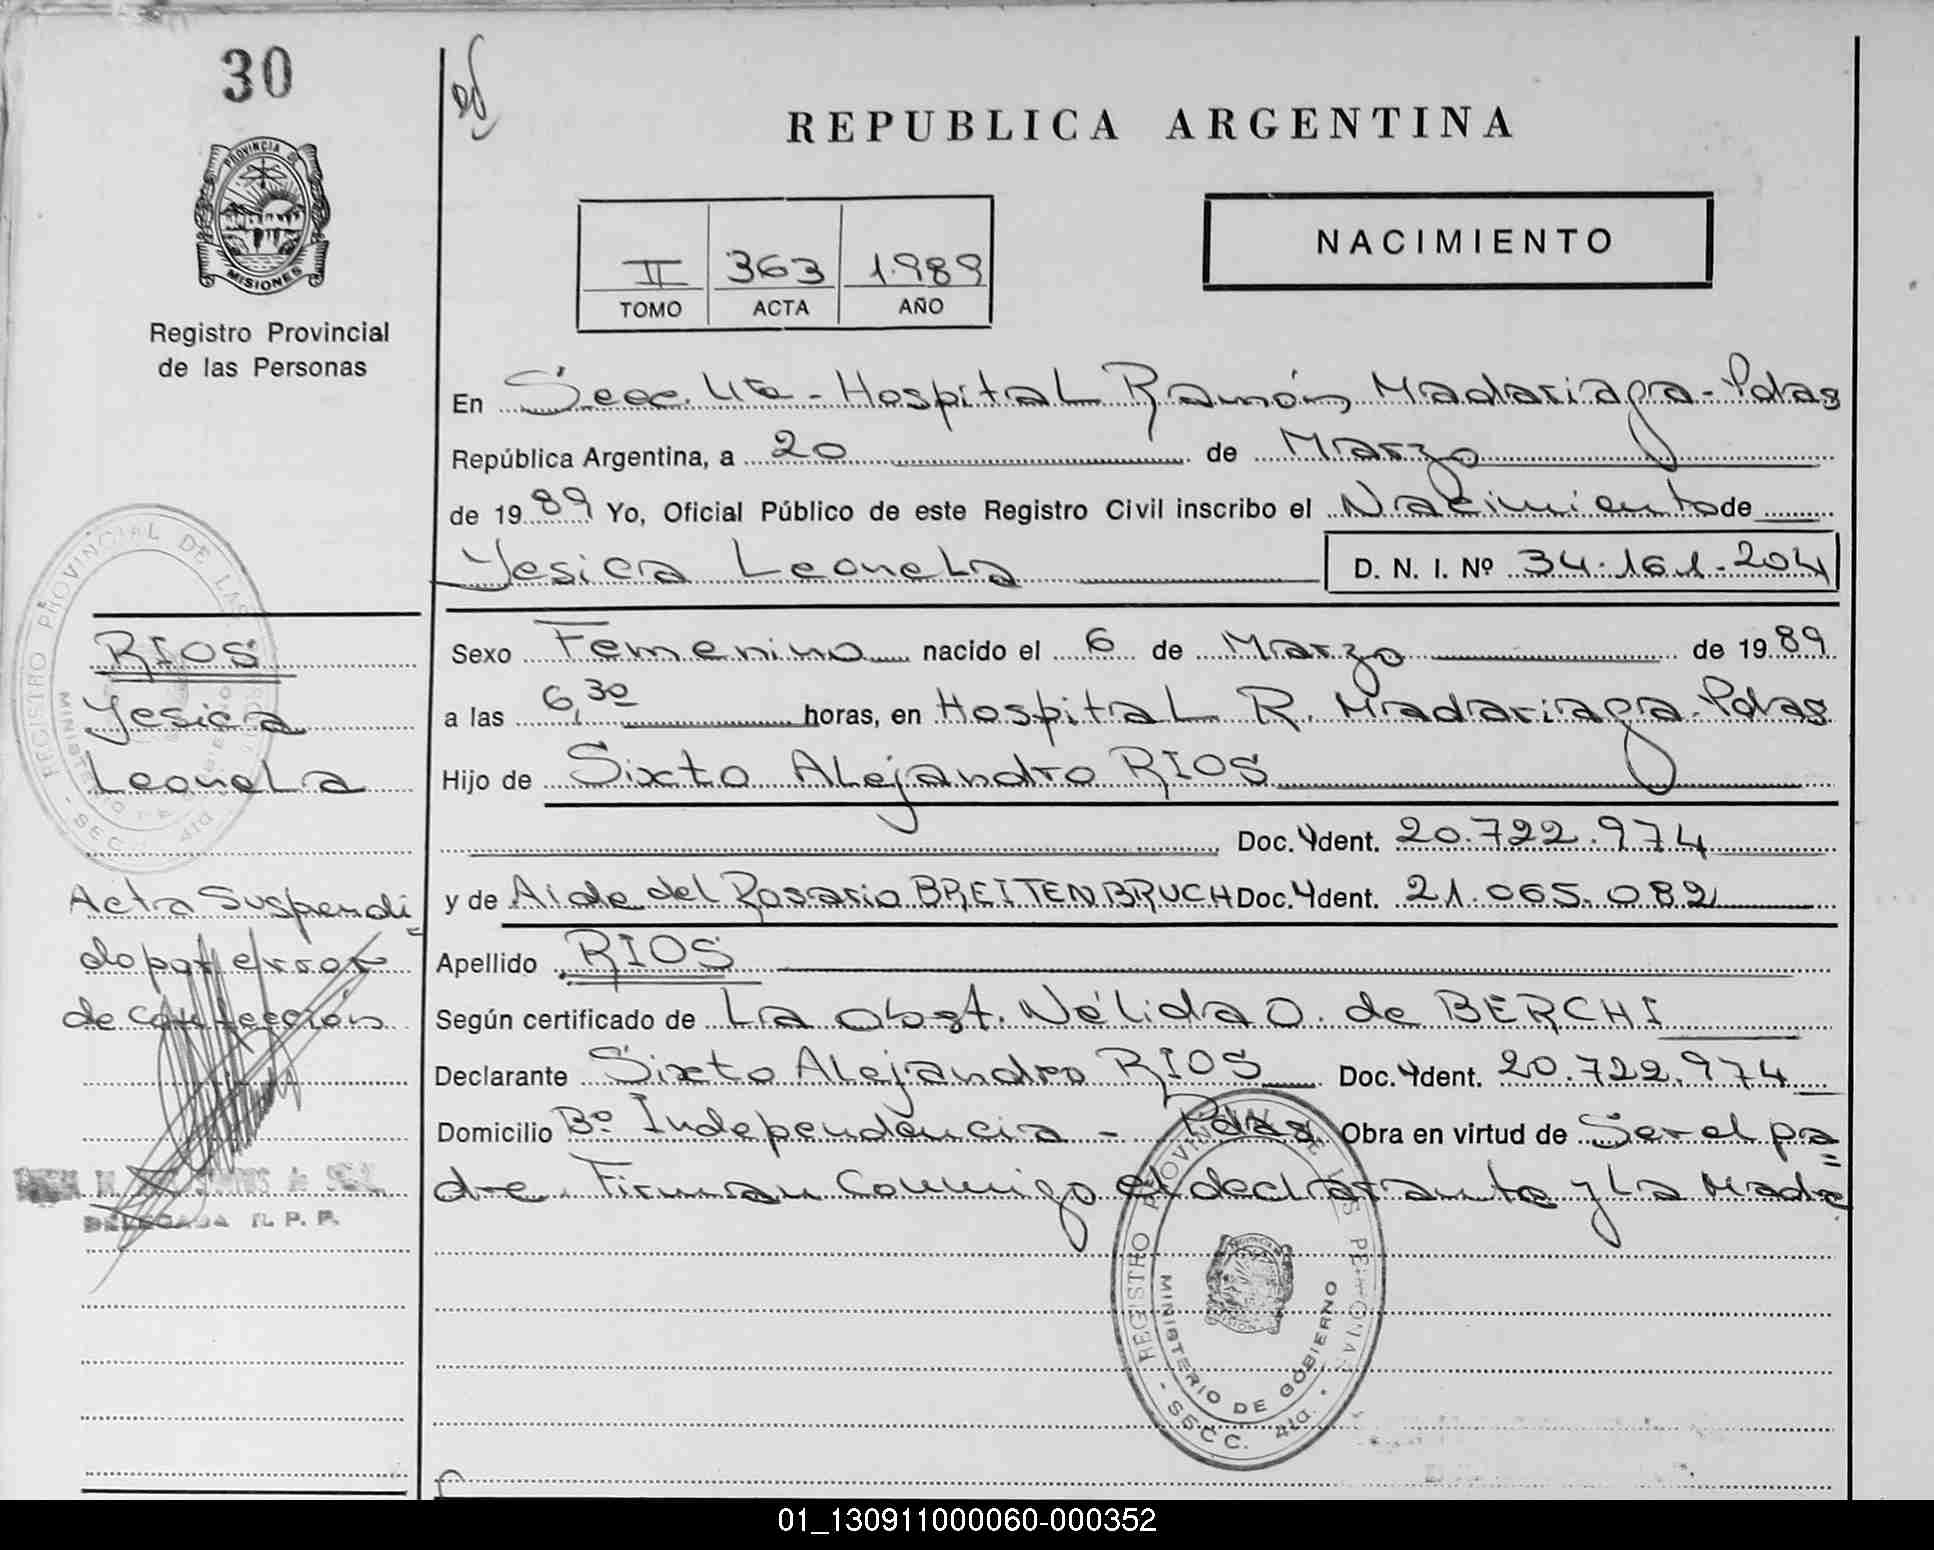 30
PROVINCIA DE
MISIONES
Registro Provincial
de las Personas
REPUBLICA ARGENTINA
II 363 1.989
TOMO ACTA AÑO
NACIMIENTO
En Secc. 4ta - Hospital Ramón Madariaga - Pdas
República Argentina, a 20 de Marzo
de 1989 Yo, Oficial Público de este Registro Civil inscribo el Nacimiento de
Yesica Leonela D. N. I. Nº 34.161.204
RIOS
Yesica
Leonela
Sexo Femenino nacido el 6 de Marzo de 1989
a las 6,30 horas, en Hospital R. Madariaga - Pdas
Hijo de Sixto Alejandro RIOS
Doc. Ydent. 20.722.974
y de Aide del Rosario BREITENBRUCH Doc. Ydent. 21.065.082
Acta Suspendi=
do por error
de confección
Apellido RIOS
Según certificado de La obst. Nélida O. de BERCHI
Declarante Sixto Alejandro RIOS Doc. Ydent. 20.722.974
Domicilio Bº Independencia - Pdas Obra en virtud de Ser el pa=
dre. Firman Conmigo el declarante y La Madre
DELEGADA R. P. P.
REGISTRO PROVINCIAL DE LAS PERSONAS
MINISTERIO DE GOBIERNO
- SECC. 4ta. -
01_130911000060-000352